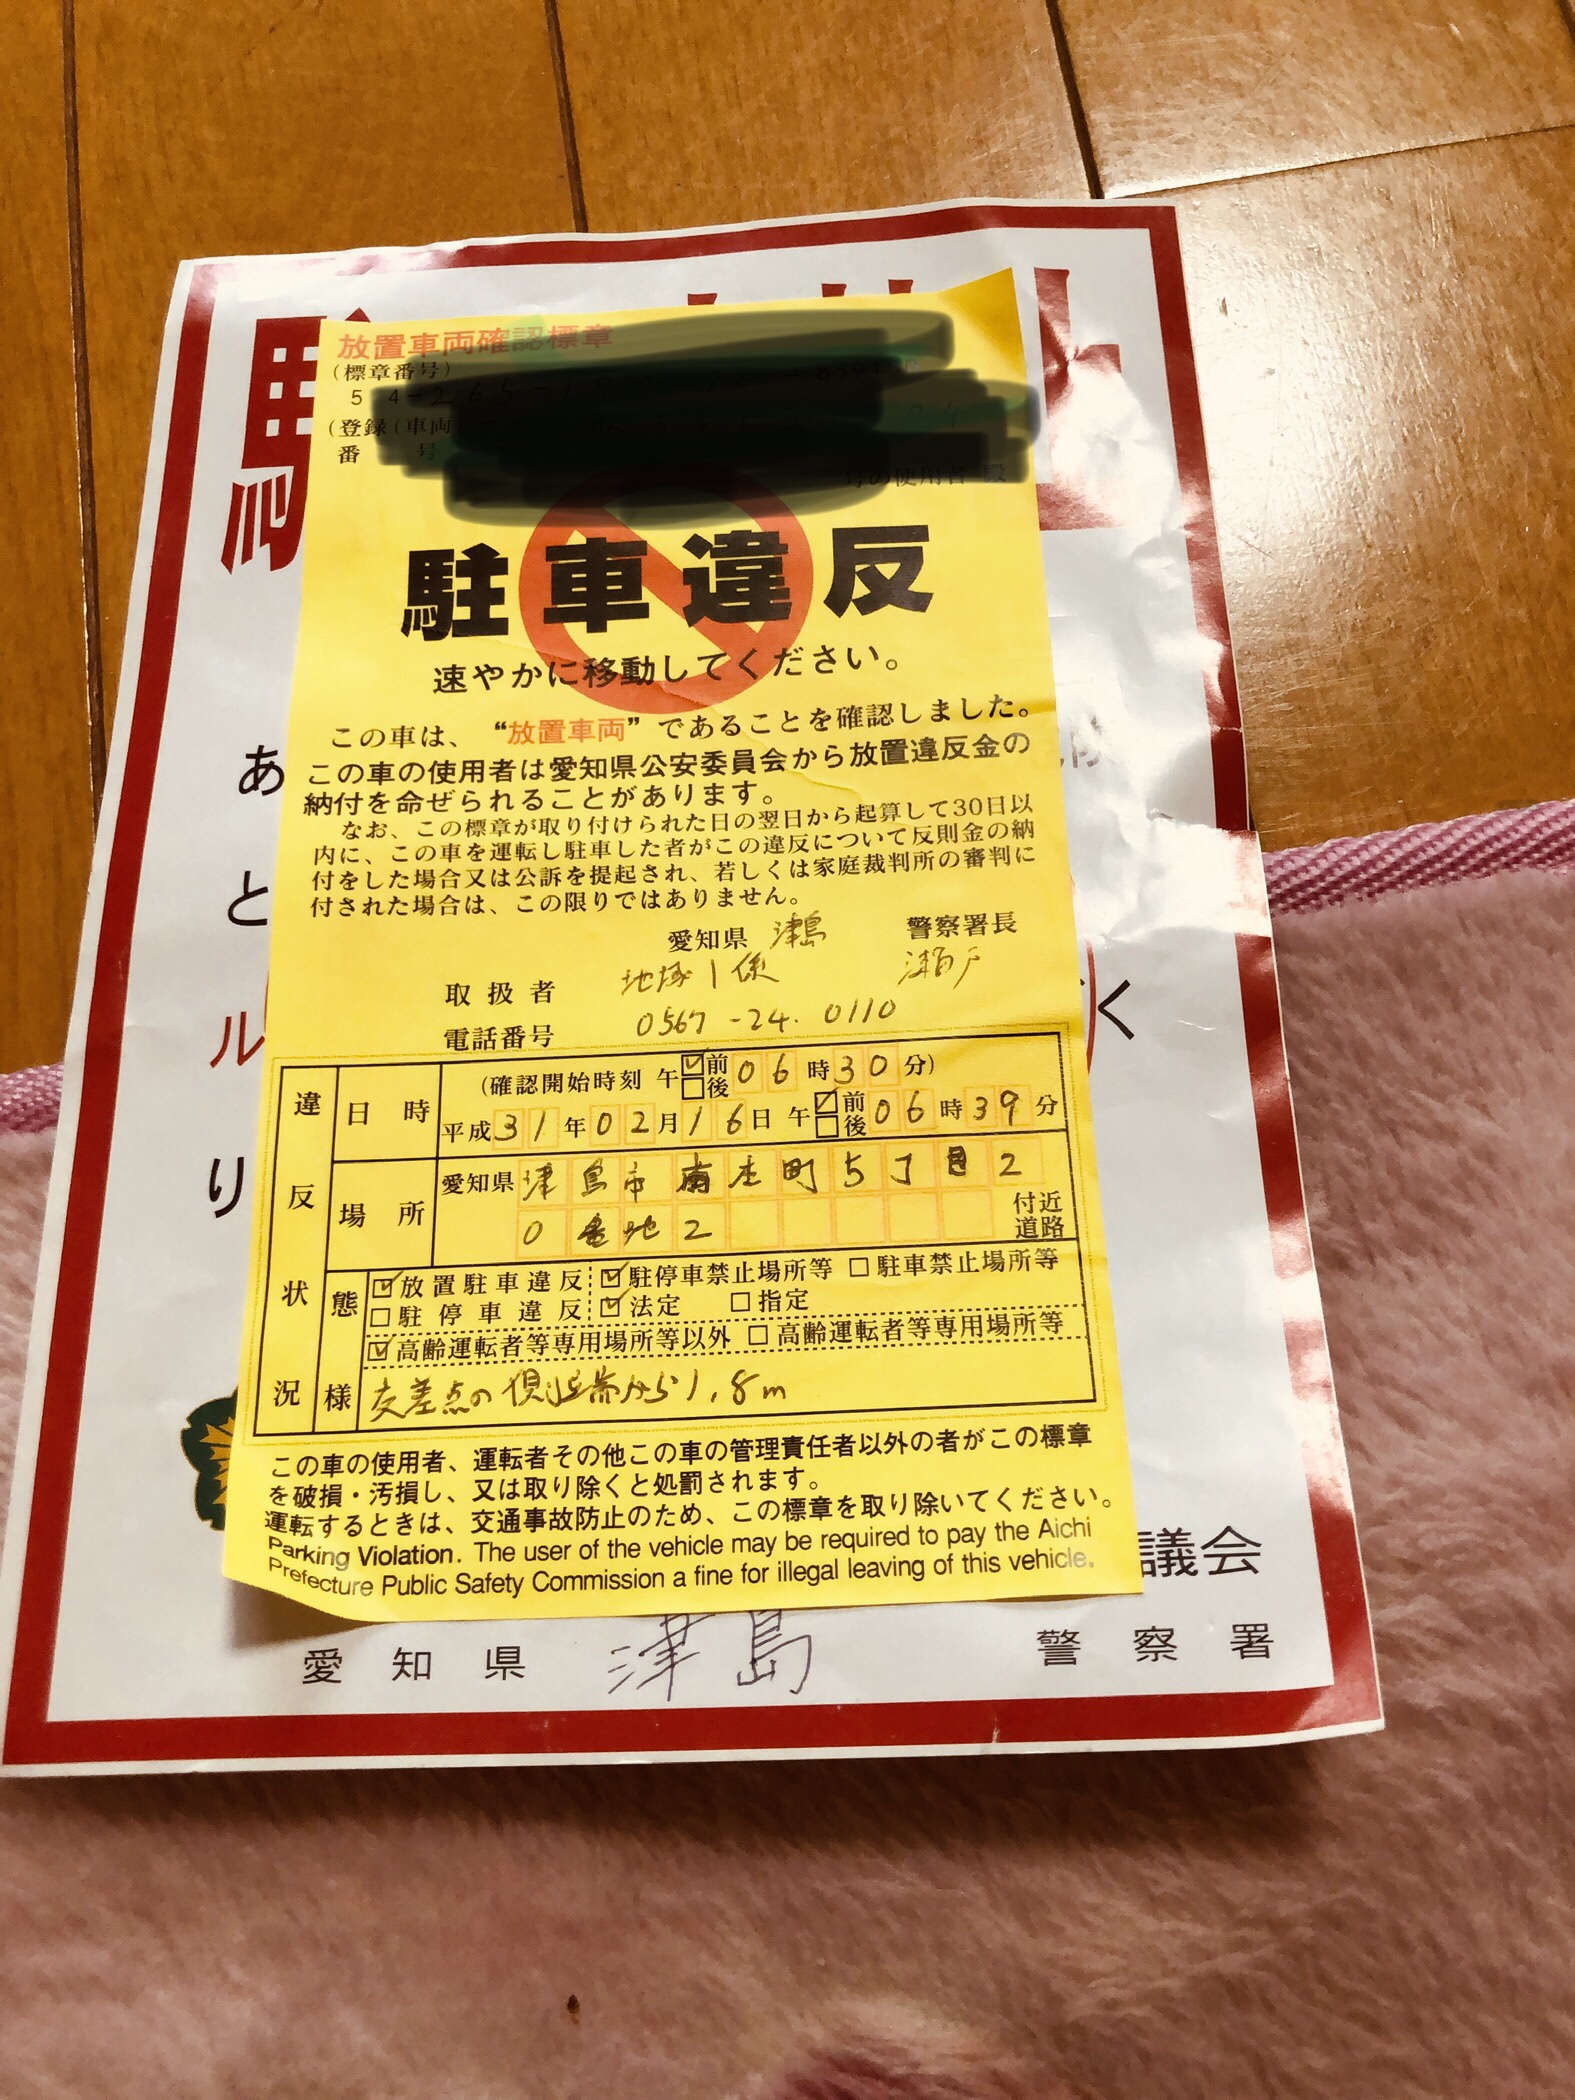 放置車両確認標章
(標章番号)
5 4-265-19
(登録(車両)
番 号
号の使用者 殿
駐車違反
速やかに移動してください。
この車は、“放置車両”であることを確認しました。
この車の使用者は愛知県公安委員会から放置違反金の
納付を命ぜられることがあります。
なお、この標章が取り付けられた日の翌日から起算して30日以
内に、この車を運転し駐車した者がこの違反について反則金の納
付をした場合又は公訴を提起され、若しくは家庭裁判所の審判に
付された場合は、この限りではありません。
愛知県 津島 警察署長
取扱者 地域1係 瀬戸
電話番号 0567-24-0110
違反状況
日時
(確認開始時刻 午 ☑前 □後 06時30分)
平成31年02月16日 午 ☑前 □後 06時39分
場所
愛知県 津島市南本町5丁目2
0番地2 付近道路
態様
☑放置駐車違反 ☑駐停車禁止場所等 □駐車禁止場所等
□駐停車違反 ☑法定 □指定
☑高齢運転者等専用場所等以外 □高齢運転者等専用場所等
交差点の側端から1.8m
この車の使用者、運転者その他この車の管理責任者以外の者がこの標章
を破損・汚損し、又は取り除くと処罰されます。
運転するときは、交通事故防止のため、この標章を取り除いてください。
Parking Violation. The user of the vehicle may be required to pay the Aichi
Prefecture Public Safety Commission a fine for illegal leaving of this vehicle.
あ
と
ル
く
り
議会
愛知県 津島 警察署